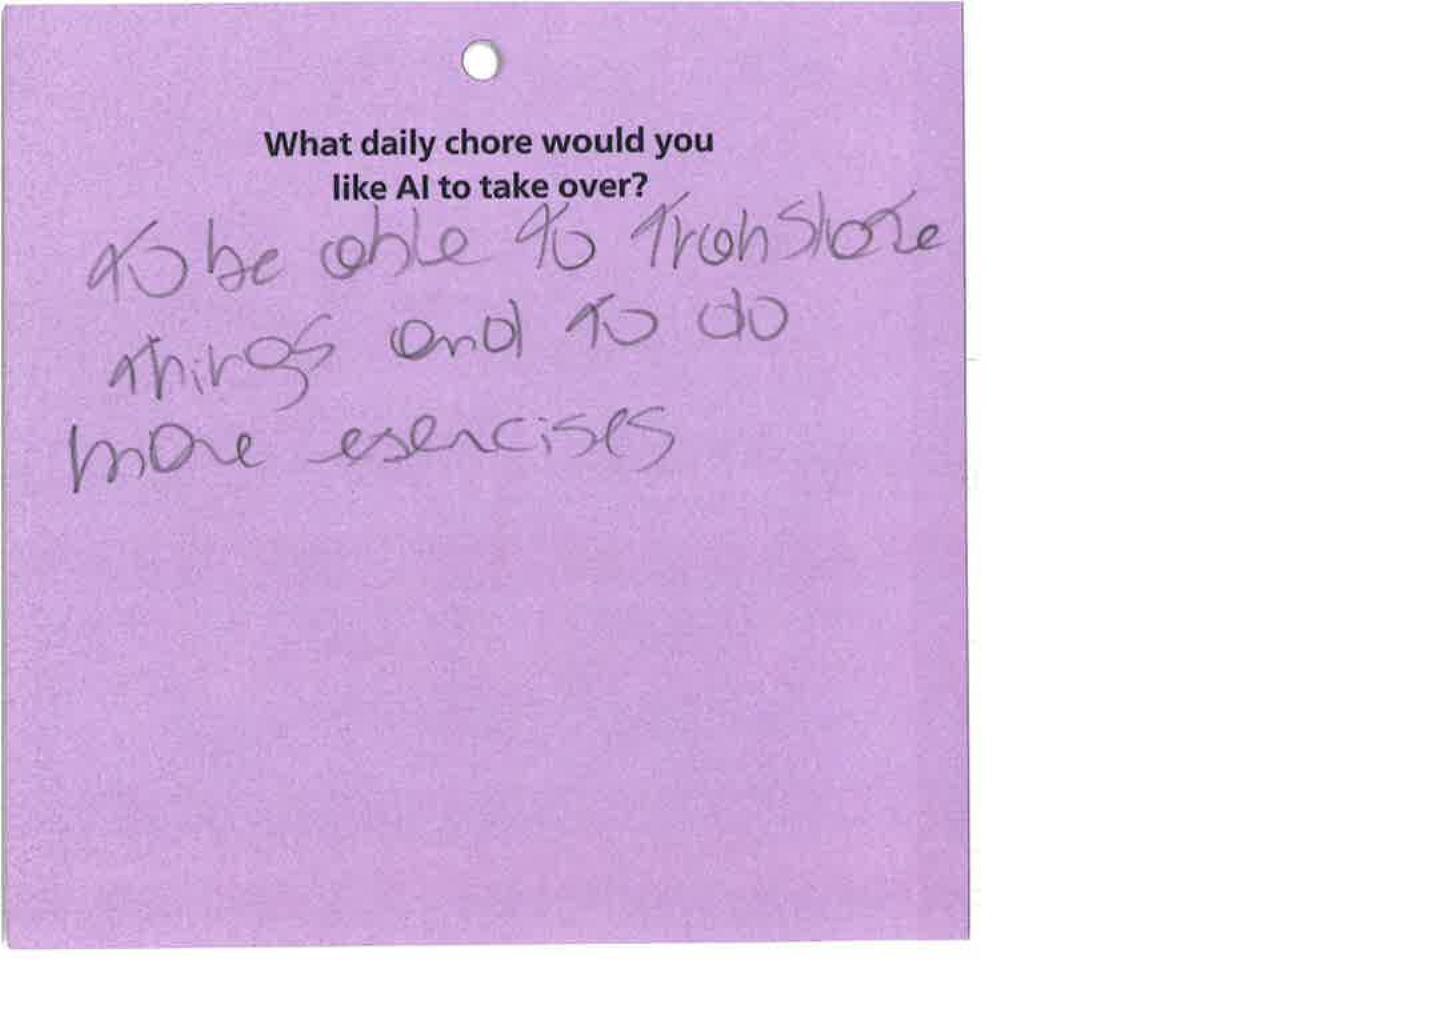 What daily chore would you
like AI to take over?
to be able to translate
things and to do
more esercises